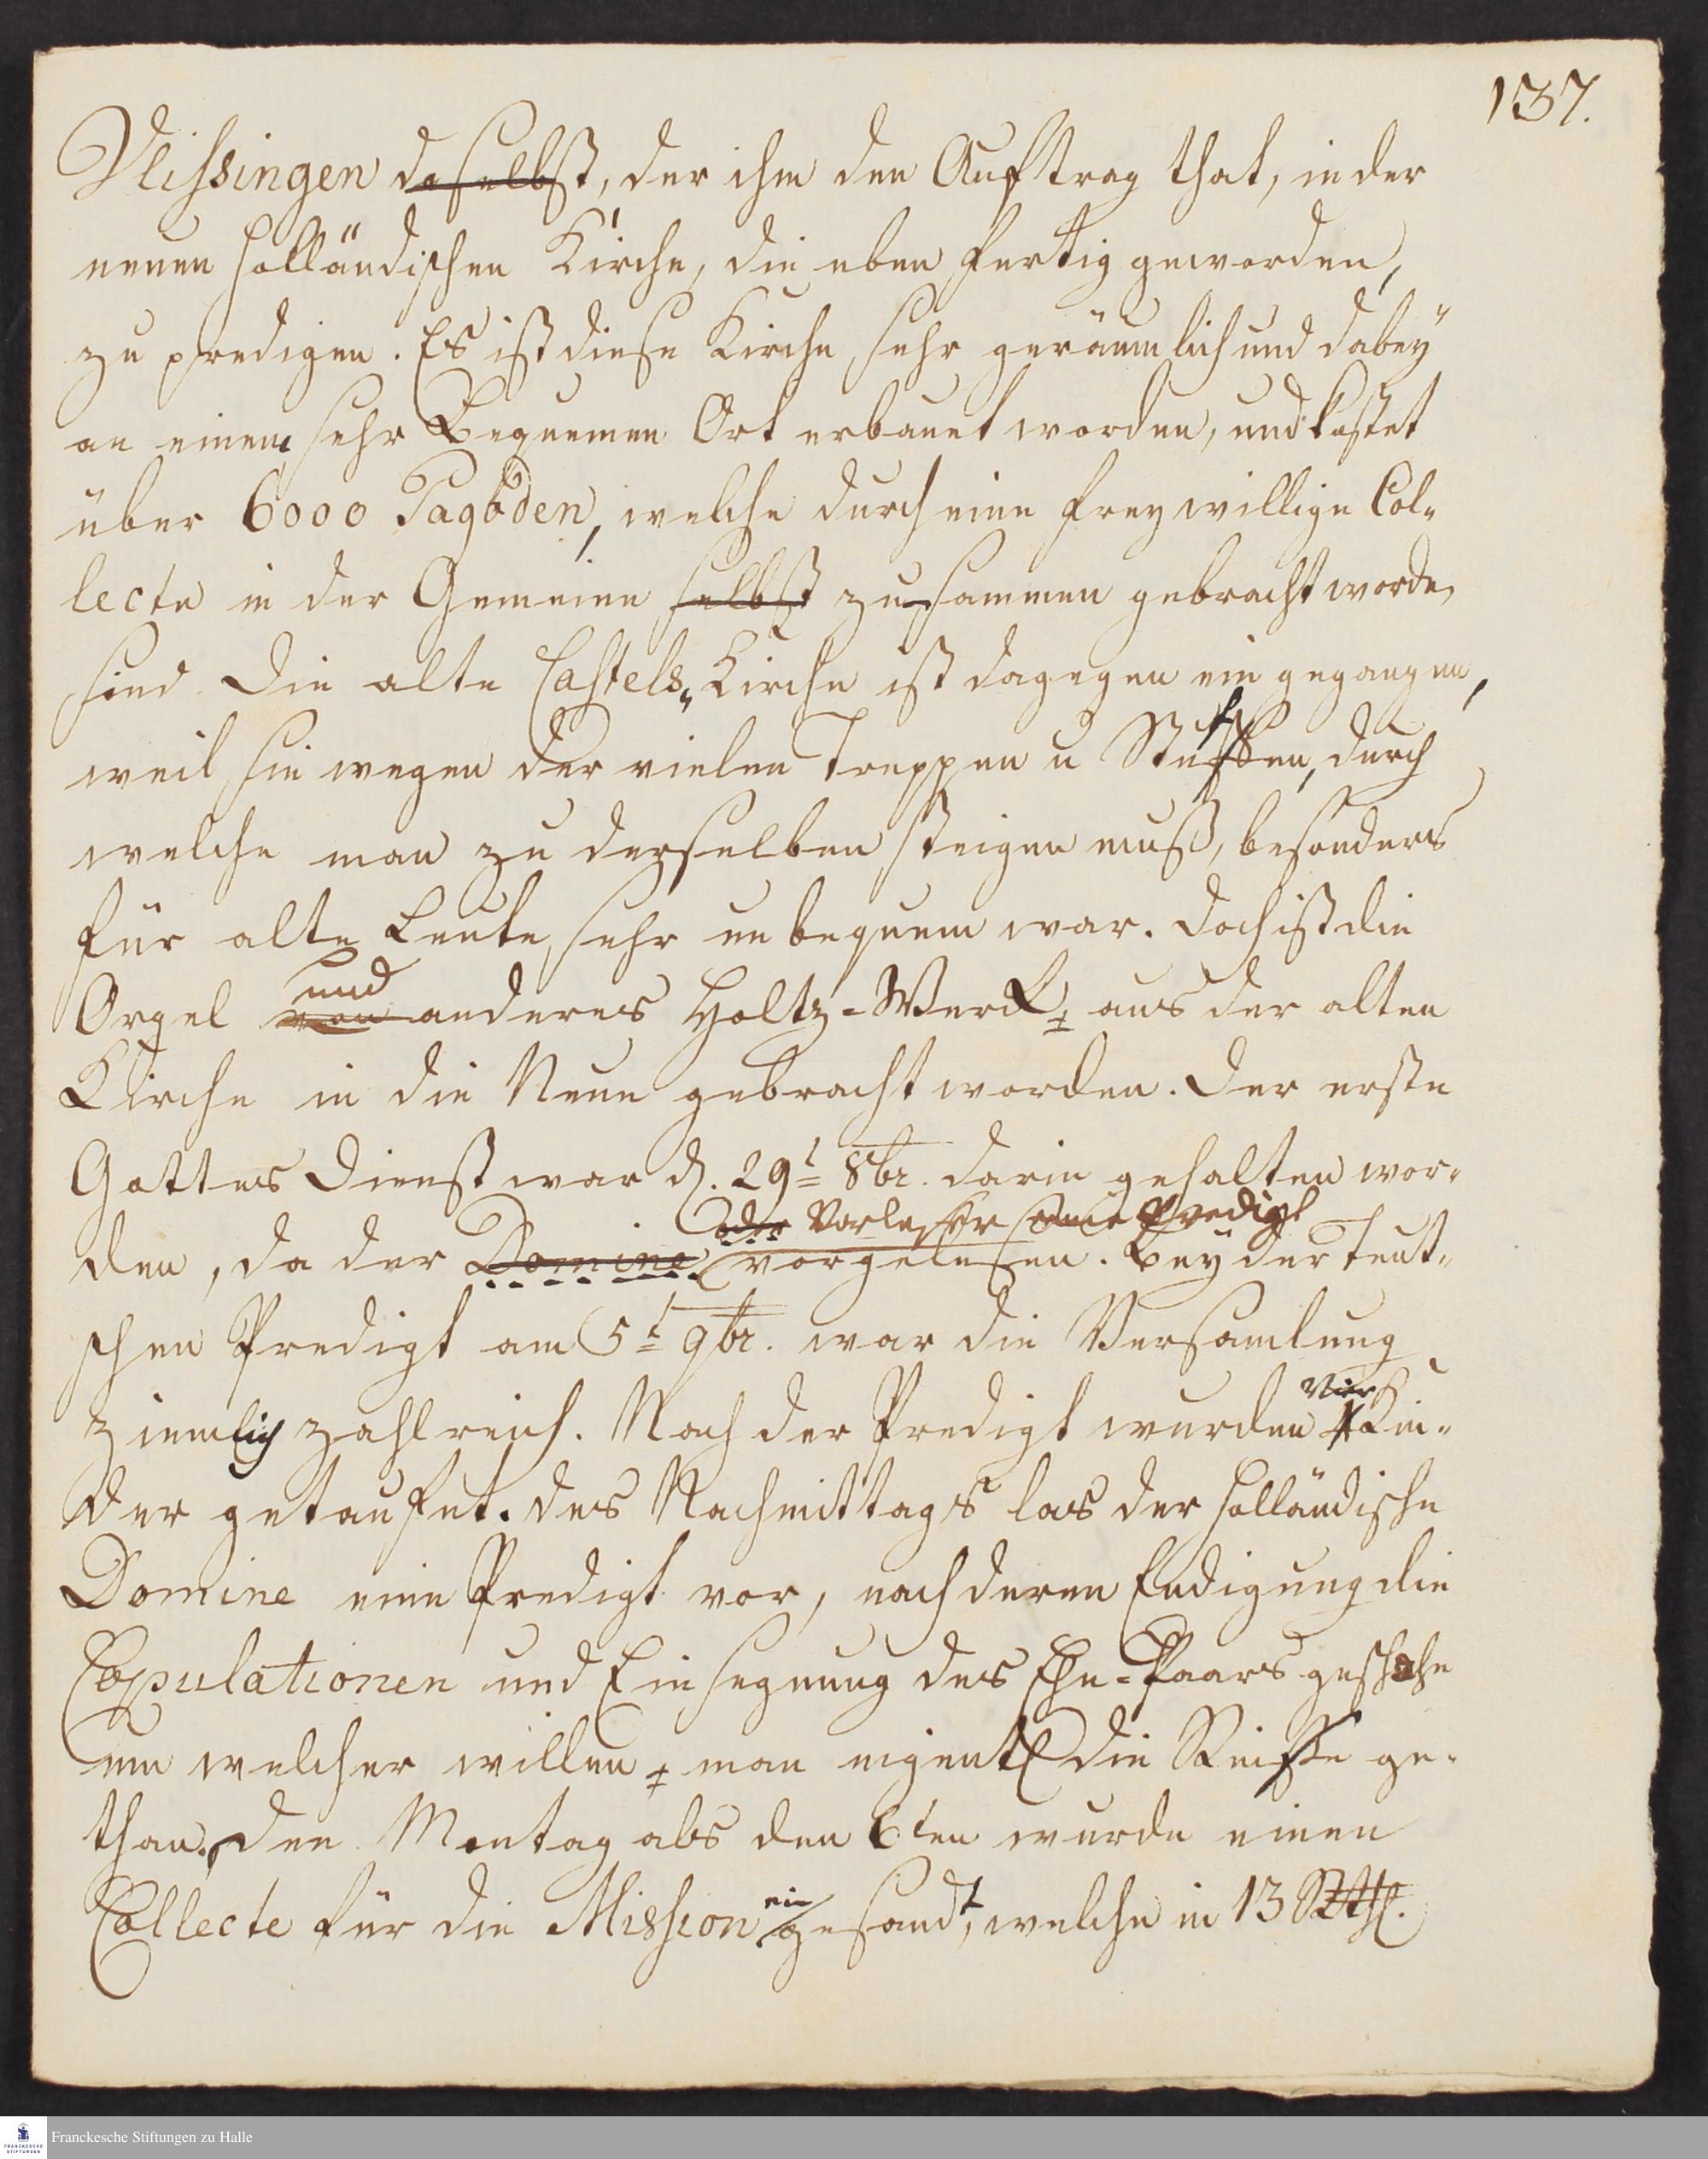 137.
Vlissingen daselbst, der ihm den Auftrag that, in der
neuen holländischen Kirche, die eben fertig geworden,
zu predigen. Es ist diese Kirche sehr geräumlich und dabey
an einem sehr bequemen Ort erbauet worden, und kostet
über 6000 Pagoden, welche durch eine freywillige Col-
lecte in der Gemeine selbst zusammen gebracht worden
sind. Die alte Castels-Kirche ist dagegen eingegangen,
weil sie wegen der vielen Treppen u Stuffen, durch
welche man zu derselben steigen muß, besonders
für alte Leute sehr unbequem war. Doch ist die
und
Orgel von anderes Holtz-Werck aus der alten
Kirche in die Neue gebracht worden. Der erste
Gottes Dienst war d. 29t 8br. darin gehalten wor-
oder Vorleser eine Predigt
den, da der Domine vorgelesen. Bey der Teut-
schen Predigt am 5t 9br. war die Versamlung
Vier
ziemlich zahlreich. Nach der Predigt wurden 4 Kin-
der getaufet. Des Nachmittags las der holländische
Domine eine Predigt vor, nach deren Endigung die
Copulationen und Einsegnung des Ehe-Paars geschahe
um welcher willen man eigentl die Reise ge-
than. Den Montag als den 6ten wurde einen
ein
Collecte für die Mission gesandt, welche in 13
Franckesche Stiftungen zu Halle